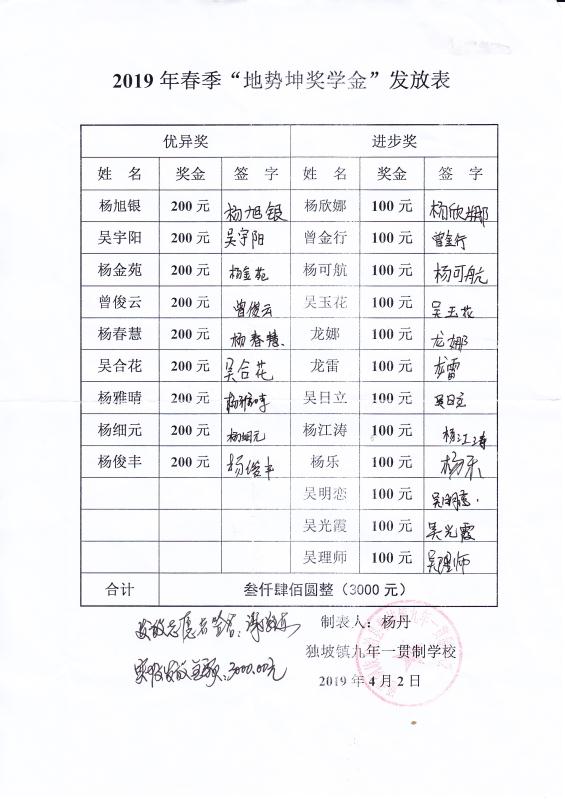 2019 年春季“地势坤奖学金”发放表
优异奖 进步奖
姓 名 奖金 签 字 姓 名 奖金 签 字
杨旭银 200 元 杨旭银 杨欣娜 100 元 杨欣娜
吴宇阳 200 元 吴宇阳 曾金行 100 元 曾金行
杨金苑 200 元 杨金苑 杨可航 100 元 杨可航
曾俊云 200 元 曾俊云 吴玉花 100 元 吴玉花
杨春慧 200 元 杨春慧 龙娜 100 元 龙娜
吴合花 200 元 吴合花 龙雷 100 元 龙雷
杨雅晴 200 元 杨雅晴 吴日立 100 元 吴日立
杨细元 200 元 杨细元 杨江涛 100 元 杨江涛
杨俊丰 200 元 杨俊丰 杨乐 100 元 杨乐
吴明恋 100 元 吴明恋
吴光霞 100 元 吴光霞
吴理师 100 元 吴理师
合计 叁仟肆佰圆整（3000 元）
发放志愿者签名： 制表人：杨丹
独坡镇九年一贯制学校
实际发放金额：3000.00元
2019 年 4 月 2 日